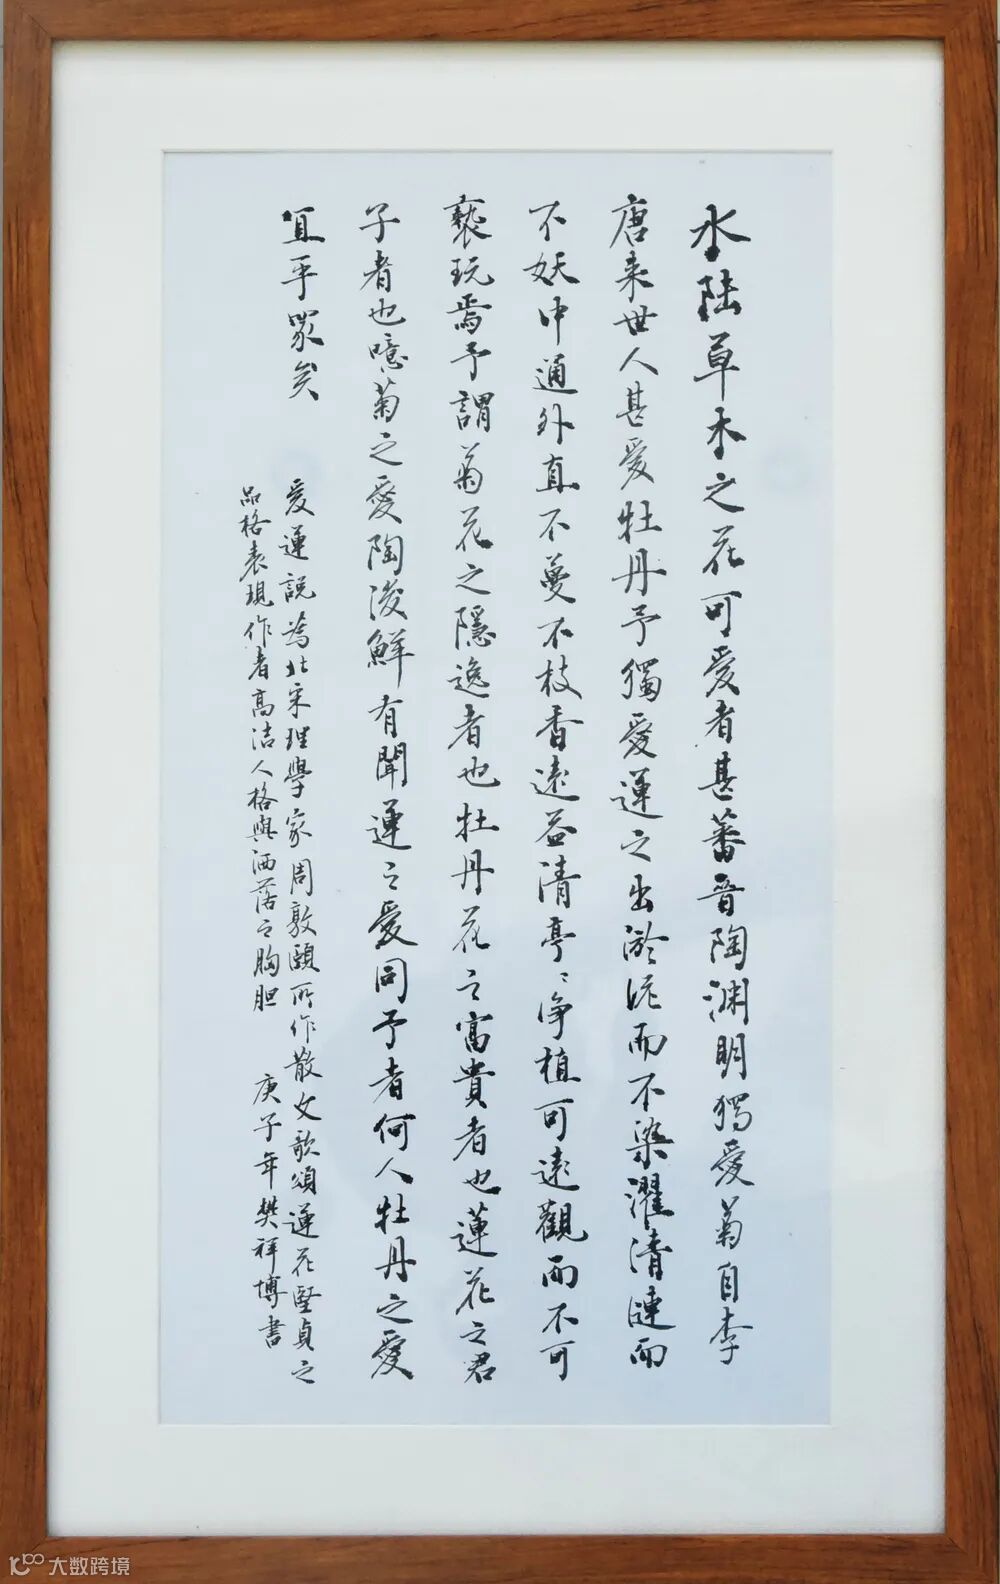 水陆草木之花可爱者甚蕃晋陶渊明独爱菊自李
唐来世人甚爱牡丹予獨爱蓮之出淤泥而不染濯清漣而
不妖中通外直不蔓不枝香遠益清亭〻净植可遠觀而不可
褻玩焉予謂菊花之隱逸者也牡丹花之富貴者也蓮花之君
子者也噫菊之愛陶後鮮有聞蓮之愛同予者何人牡丹之愛
宜乎眾矣
爱蓮説為北宋理學家周敦頤所作散文歌頌蓮花堅貞之
品格表現作者高洁人格與洒落之胸胆
庚子年樊祥博書
大数跨境